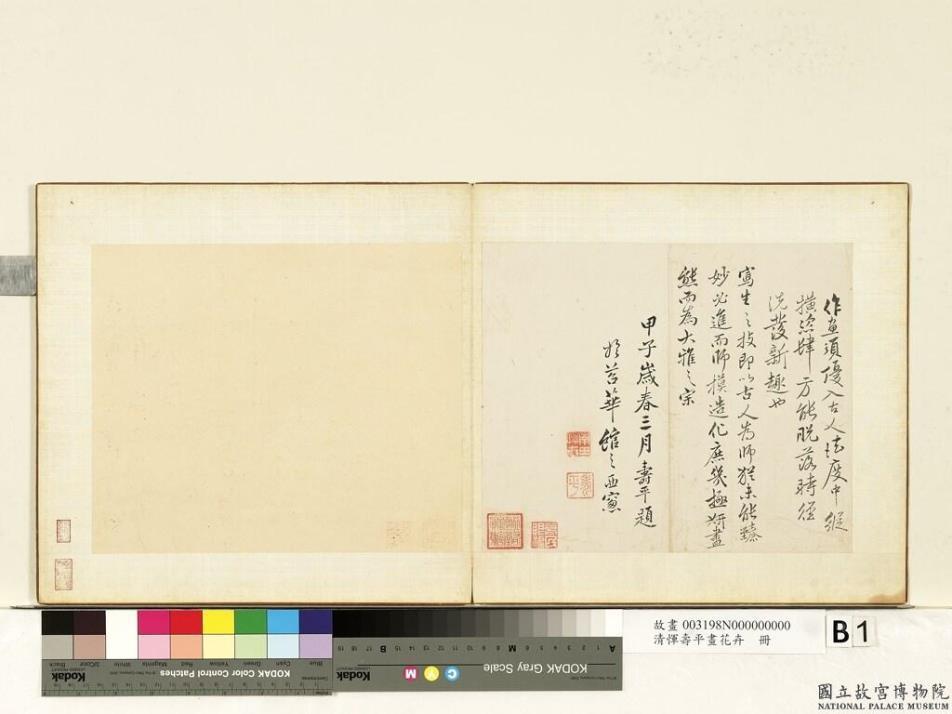 作畫須優入古人法度中縱
橫恣肆方能脫落時徑
洗發新趣也
寫生之技即以古人為師猶未能臻
妙必進而師模造化庶幾極妍盡
態而為大雅之宗
甲子歲春三月壽平題
於苕華館之西窗
KODAK Color Control Patches
Blue
Cyan
Green
Yellow
Red
Magenta
White
3/Color
Black
Kodak
KODAK Gray Scale
C
Y
M
Kodak
A 1 2 3 4 5 6 M 8 9 10 11 12 13 14 15 B 17 18 19
故畫 003198N000000000
清惲壽平畫花卉 冊
B1
國立故宮博物院
NATIONAL PALACE MUSEUM